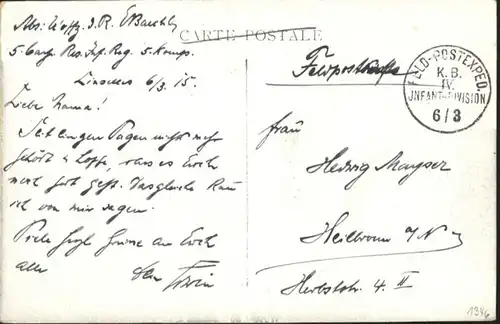 Abs: Uoffz. d. R. E. Baechtl
CARTE POSTALE
5. Comp. Res. Inf. Reg. 5. Komp.
Linselles 6/3. 15.
Feldpostkarte
FELD-POSTEXPED.
K.B.
IV.
INFANT-DIVISION
6/3
Liebe Mama!
Seit einigen Tagen nichts mehr
gehört u. hoffe, dass es Euch
recht gut geht. Dasgleiche kann
ich von mir sagen.
Viele herzl. Grüsse an Euch
alle Dein Erwin
Frau
Hedwig Mayser
Heilbronn a/N
Herbststr. 4. II
1346